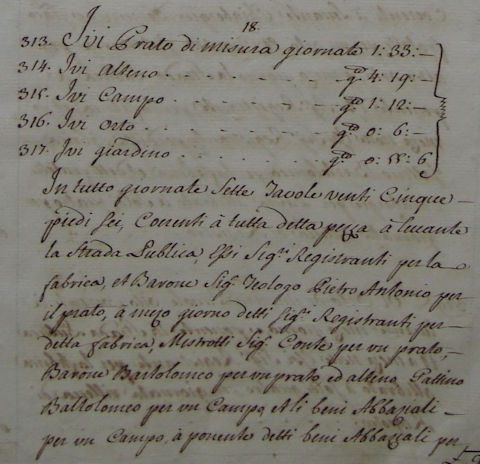 18.
313. Ivi Prato di misura giornate 1: 33:—
314. Ivi alteno . . . . . . gte 4: 19:—
315. Ivi Campo . . . . . . gte 1: 12:—
316. Ivi orto . . . . . . gte 0: 6:—
317. Ivi giardino . . . . . . gte 0: 55: 6
In tutto giornate Sette Tavole venti Cinque—
piedi Sei, Coerenti à tutta detta pezza à levante
la Strada Publica Essi Sigri Registranti per la
fabrica, et Barone Sigr Teologo Pietro Antonio per
il prato, à mezo giorno detti Sigri Registranti per
detta fabrica, Mistrotti Sigr Conte per vn prato,—
Barone Bartolomeo per vn prato, ed alteno, Pattino
Bartolomeo per vn Campo, A li beni Abbaziali—
per vn Campo, à ponente detti beni Abbaziali per